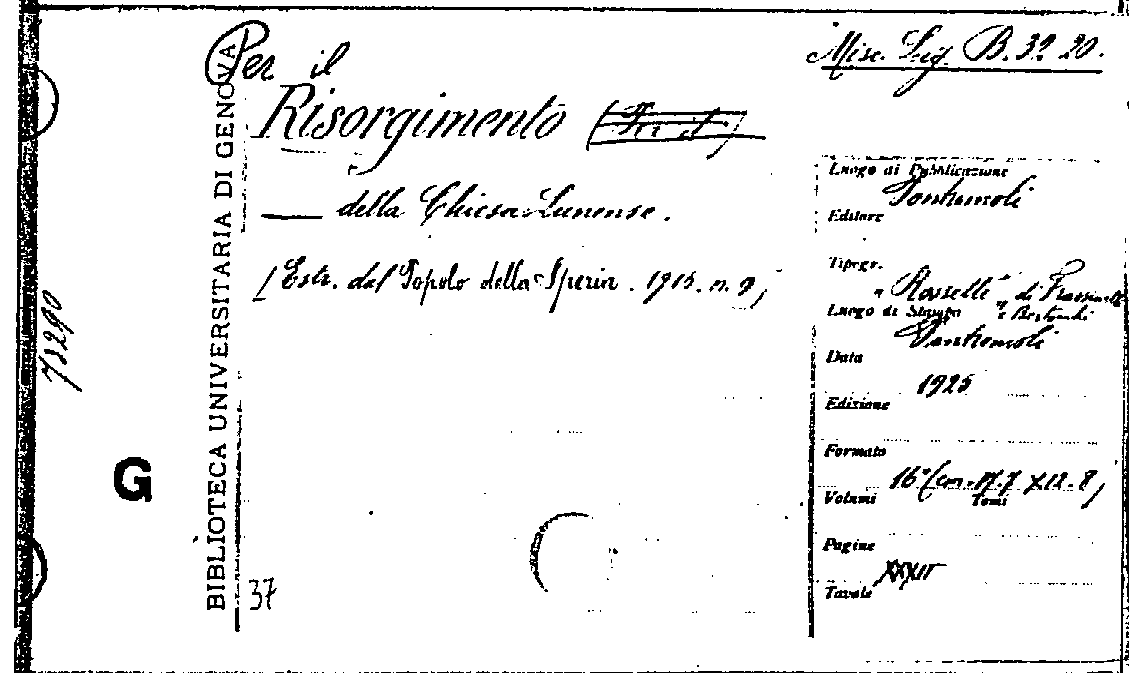 Misc. Lig. B. 32 20.
Per il
Risorgimento (Per il)
— della Chiesa Lunense.
[Estr. dal Popolo della Speria. 1915. n. 9]
BIBLIOTECA UNIVERSITARIA DI GENOVA
73290
G
37
Luogo di Pubblicazione
Pontremoli
Editore
Tipogr.
"Rosselli" di Frassinelli
e Bertocchi
Luogo di Stampa
Pontremoli
Data
1925
Edizione
Formato
16° (cm. 17.7 X 12.8)
Volumi Tomi
Pagine
Tavole